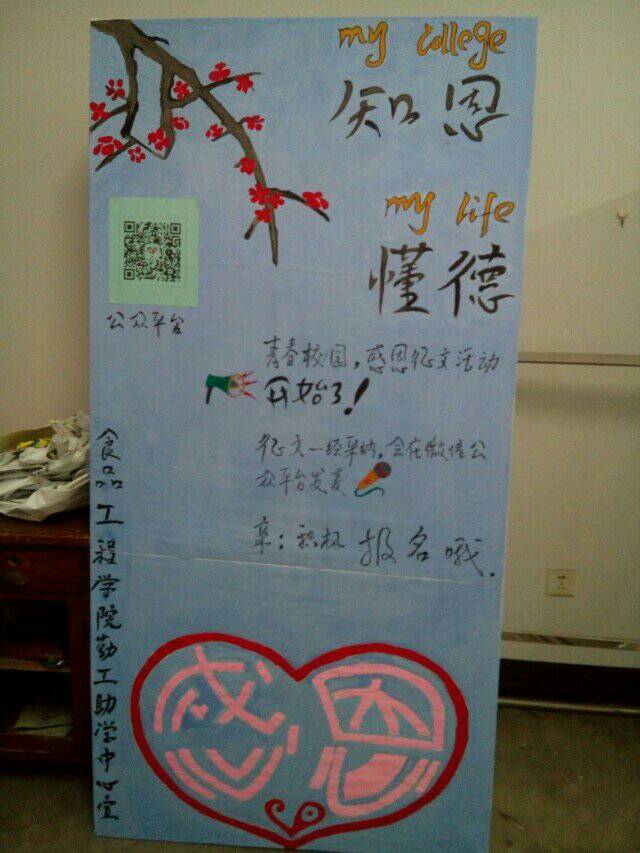 my college
知恩
my life
懂德
公众平台
青春校园，感恩征文活动
开始了！
征文一经采纳，会在微信公
众平台发表
亲：积极报名哦.
食品工程学院勤工助学中心宣
感恩